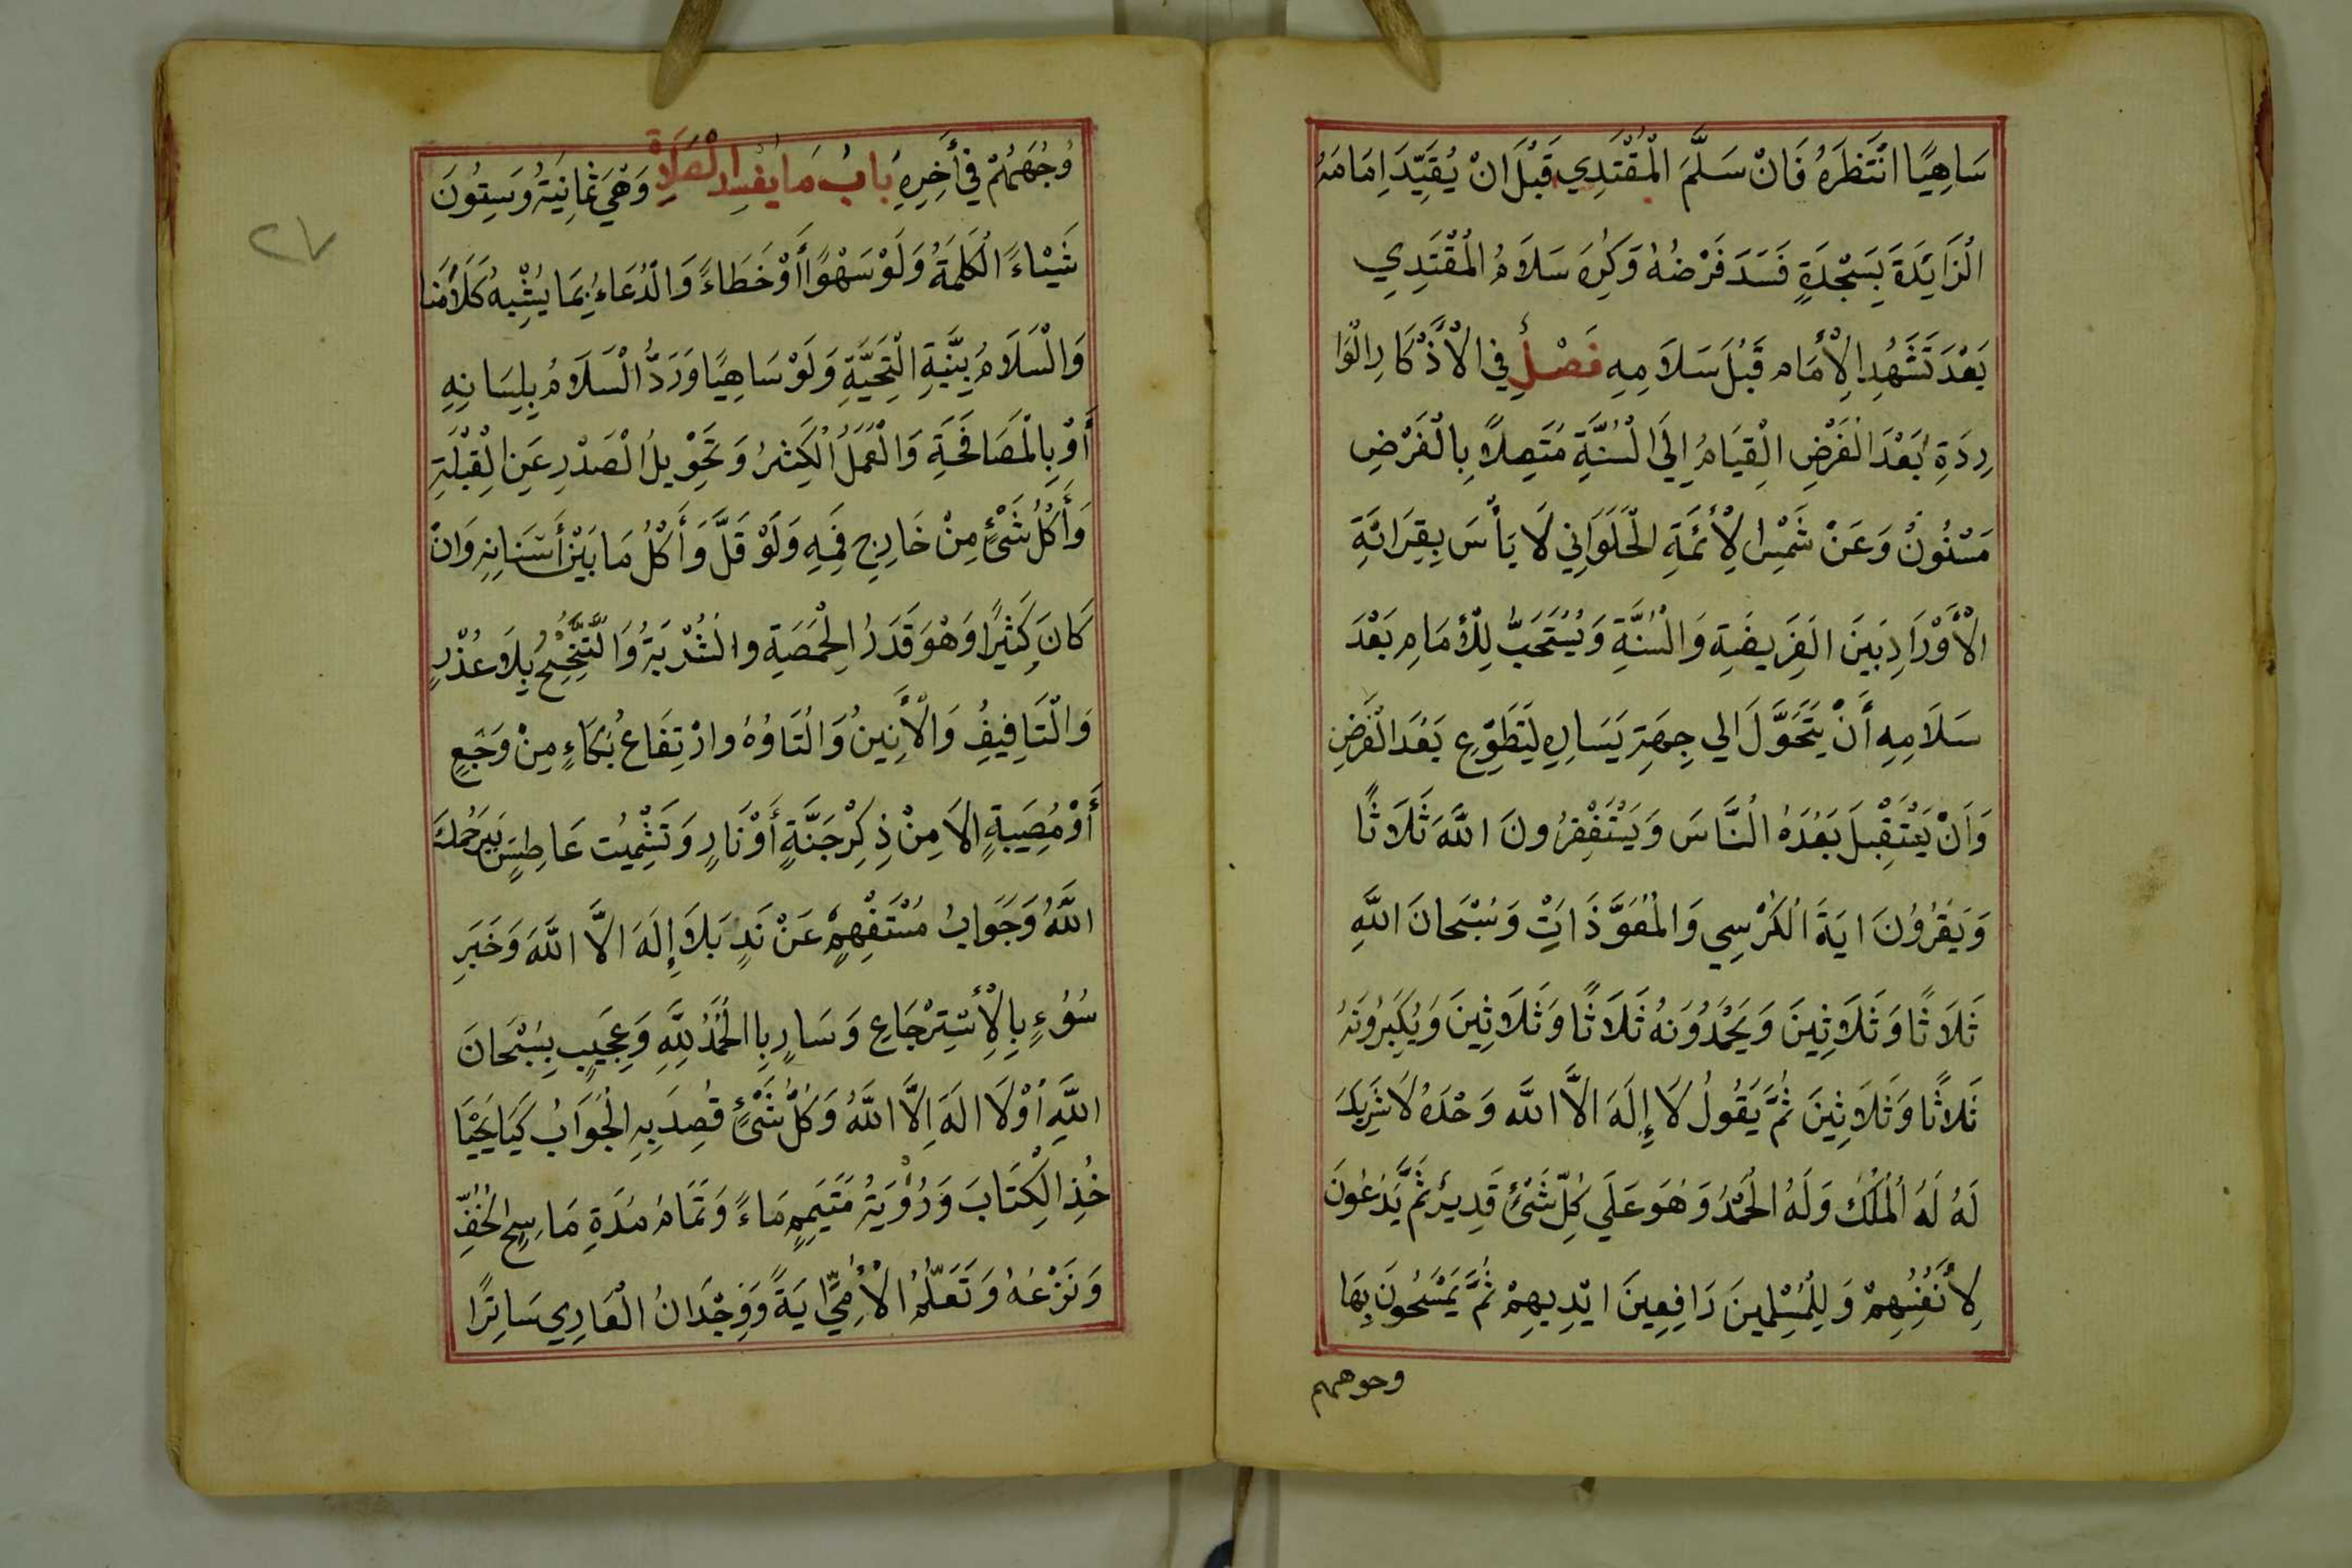 سَاهِيًا انْتَظَرَهُ فَانْ سَلَّمَ الْمُقْتَدِي قَبْلَ انْ يُقَيِّدَ اِمَامَهُ
الْزَايَدَةَ بِسَجْدَةٍ فَسَدَ فَرْضُهُ وَكَرِهَ سَلَامُ الْمُقْتَدِي
بَعْدَ تَشَهُّدِ الْأِمَام قَبْلَ سَلَامِهِ فَصْلٌ فِي الْأَذْكَارِ الْوَا
رِدَةِ بَعْدَ الْفَرْضِ الْقِيَامُ اِلَى الْسُنَّةِ مُتَصِلاً بِالْفَرْضِ
مَسْنُونٌ وَعَنْ شَمْسِ الْأَئَمَّةِ الْحَلَوَانِي لَا بَأْسَ بِقِرَائَةِ
الْأَوْرَادِ بَيَنَ الفَرِيضَةِ وَالسُنَّةِ وَيُسْتَحَبُّ لِلْأِمَامِ بَعْدَ
سَلَامِهِ أَنْ يَتَحَوَّلَ الي جِهَةِ يَسَارِهِ لِتَطَوِّعِ بَعْدَ الْفَرْضِ
وَاَنْ يَسْتَقْبِلَ بَعْدَهُ النَّاسَ وَيَسْتَغْفِرُونَ اللَّهَ ثَلَاثًا
وَيَقْرَؤُنَ ايَةَ الْكُرْسِي وَالْمُعَوَّذَاتِ وَسُبْحَانَ اللَّهِ
ثَلَاثًا وَثَلَاثِينَ وَيَحْمَدُوَنهُ ثَلَاثًا وَثَلَاثِينَ وَيُكَبِرُونَهُ
ثَلاَثًا وَثَلَاثِينَ ثُمَّ يَقُولُ لَا إِلَهَ الاَّ اللَّه وَحْدَهُ لَا شَرِيكَ
لَهُ لَهُ الْمُلْكُ وَلَهُ الْحَمْدُ وَهُوَ عَلَي كُلِّ شَيْئٍ قَدِيرٌ ثُمَّ يَدْعُونَ
لِأَنْفُسِهِمْ وَلِلْمُسْلِمِينَ رَافِعِينَ ايْدِيهِمْ ثُمَّ يَمْسَحُونَ بِهَا
وحوههم
وُجُهَهُمْ فِي أَخِرِهِ بَابُ مَا يُفْسِدُ الْصَلَاةَ وَهْيَ ثَمَانِيَةُ وَسِتُونَ
شَيْاءً الْكَلِمَةُ وَلَوْ سَهْوًا أَوْ خَطَاءً وَالْدُعَاءُ بِمَا يُشْبِهُ كَلَاَمَنَا
وَالْسَلَامُ بِنِيَّةِ الْتَحِيَّةِ وَلَوْ سَاهِيًا وَرَدُّ الْسَلَامُ بِلِسَانِهِ
أَوْ بِالْمُصَافَحَةِ وَالْعَمَلُ الْكَثِيرُ وَتَحْوِيلُ الْصَدْرِ عَنِ الْقِبْلَةِ
وَأَكْلُ شَيْئٍ مِنْ خَارِجِ فَمِهِ وَلَوْ قَلَّ وَأَكْلُ مَا بَيْنَ أَسْنَانِهِ وَانْ
كَانَ كَثِيرًا وَهْوَ قَدَرُ الْحِمَّصَةِ والشُرْبَةُ وَالتَّنَحْنُحُ بِلَا عُذْرٍ
وَالْتَافِيفِ وَالْأَنِينُ وَالْتَاوُهُ وارْتِفَاعُ بُكَاءٍ مِنْ وَجَعٍ
أَوْ مُصِيبَةٍ الاَ مِنْ ذِكِرْ جَنَّةٍ أَوْنَارٍ وَتَشْمِيت عَاطِسٍ بَيرَحُمكَ
اللَّهُ وَجَوَابُ مُسْتَفْهِمٍ عَنْ نَدٍ بَلاَ إِلَهَ الاَّ اللَّهَ وَخَبَرِ
سُوْءٍ بِالْأِسْتِرْجَاعِ وَسَارٍ بِاالْحَمْدُ لِلَّهِ وَعَجِيبٍ بِسُبْحَانَ
اللَّهِ اوْلَا الَهَ اِلاَّ اللَّهُ وَكُلُّ شَيْئٍ قُصِدَ بِهِ الْجَوَابُ كَيَا يَحْيَا
خُذِ الْكِتَابَ وَرُؤْيَةُ مُتَيَمِمٍ مَاءً وَتَمَامُ مُدَةِ مَاسِحِ الْخُفِّ
وَنَزْعُهُ وَتَعَلُّمُ الْأُمِيِّ ايَةً وَوِجْدَانُ الْعَارِي سَاتِرًا
٢٧